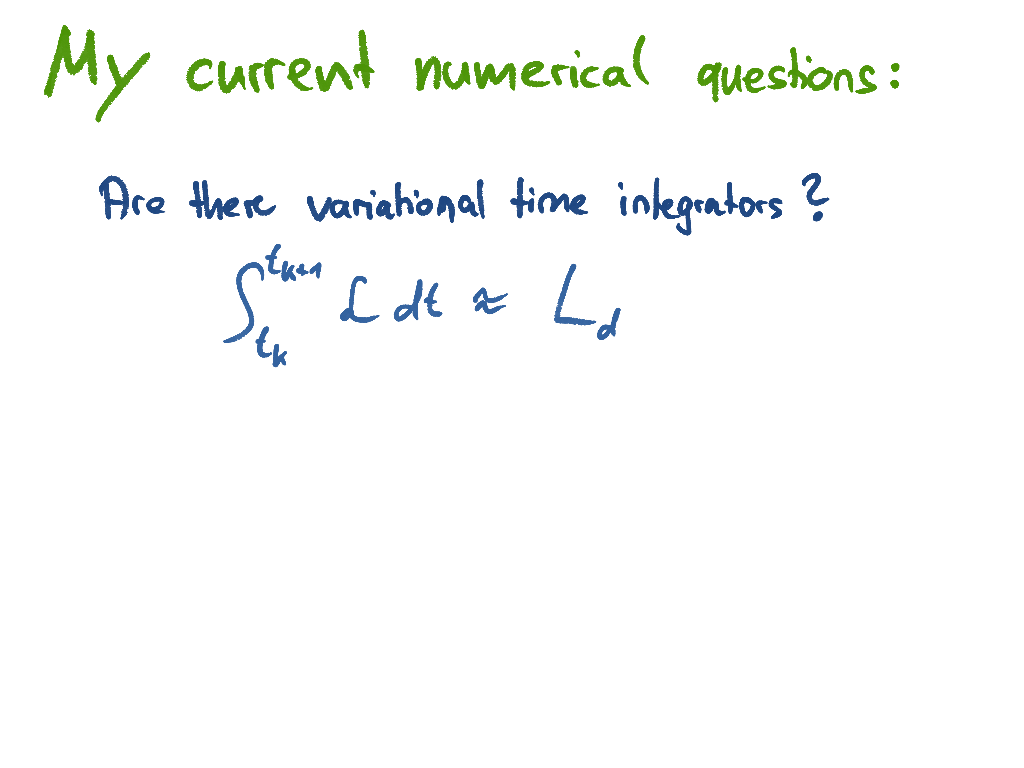 My current numerical questions:
Are there variational time integrators?
∫_{t_k}^{t_{k+1}} ℒ dt ≈ L_d